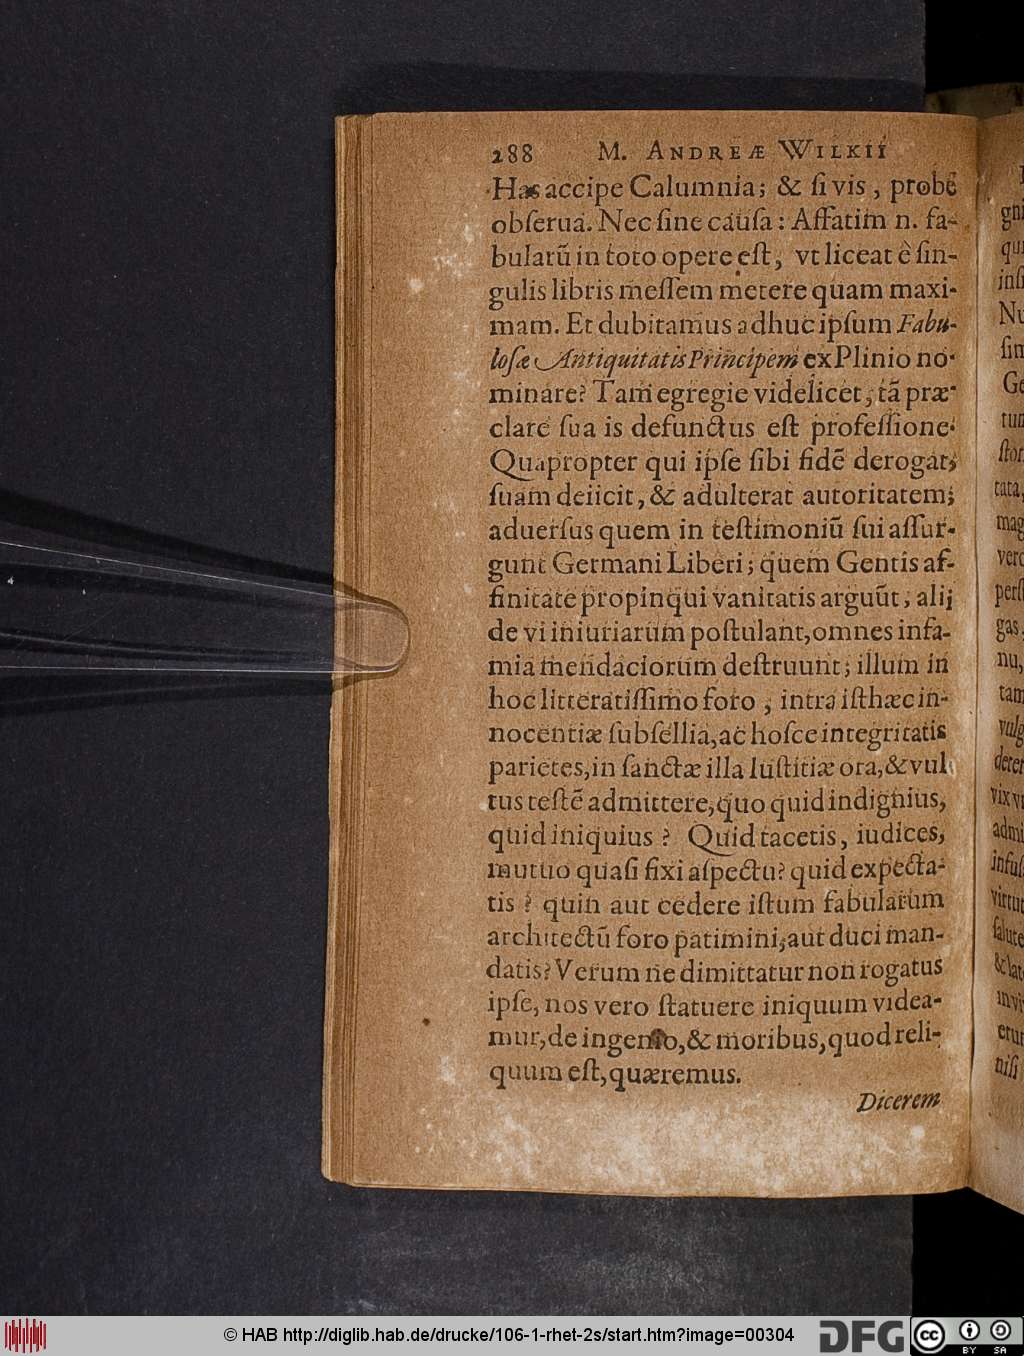 288 M. ANDREÆ WILKII
Has accipe Calumnia; & ſi vis, probè
obſerua. Nec ſine cauſa: Affatim n. fa-
bularũ in toto opere eſt, vt liceat è ſin-
gulis libris meſſem metere quam maxi-
mam. Et dubitamus adhuc ipſum Fabu-
loſæ Antiquitatis Principem ex Plinio no-
minare? Tam egregie videlicet, tã præ-
clare ſua is defunctus eſt profeſſione.
Quapropter qui ipſe ſibi fidẽ derogat,
ſuam deiicit, & adulterat autoritatem;
aduerſus quem in teſtimoniũ ſui aſſur-
gunt Germani Liberi; quem Gentis af-
finitate propinqui vanitatis arguũt, alij
de vi iniuriarum poſtulant, omnes infa-
mia mendaciorum deſtruunt; illum in
hoc litteratiſſimo foro, intra iſthæc in-
nocentiæ ſubſellia, ac hoſce integritatis
parietes, in ſanctæ illa Iuſtitiæ ora, & vul
tus teſtẽ admittere, quo quid indignius,
quid iniquius? Quid tacetis, iudices,
mutuo quaſi fixi aſpectu? quid expecta-
tis? quin aut cedere iſtum fabularum
architectũ foro patimini, aut duci man-
datis? Verum ne dimittatur non rogatus
ipſe, nos vero ſtatuere iniquum videa-
mur, de ingenio, & moribus, quod reli-
quum eſt, quæremus.
Dicerem
gni
qui
inſi
Nu
ſim
Ge
tum
ſtor
tata,
mag
vero
perſ
gas,
nu,
tam
vulg
deter
vix vi
admi
infuſ
virtut
ſalute
& lat
in vi
erun
niſi
© HAB http://diglib.hab.de/drucke/106-1-rhet-2s/start.htm?image=00304
DFG
cc BY SA